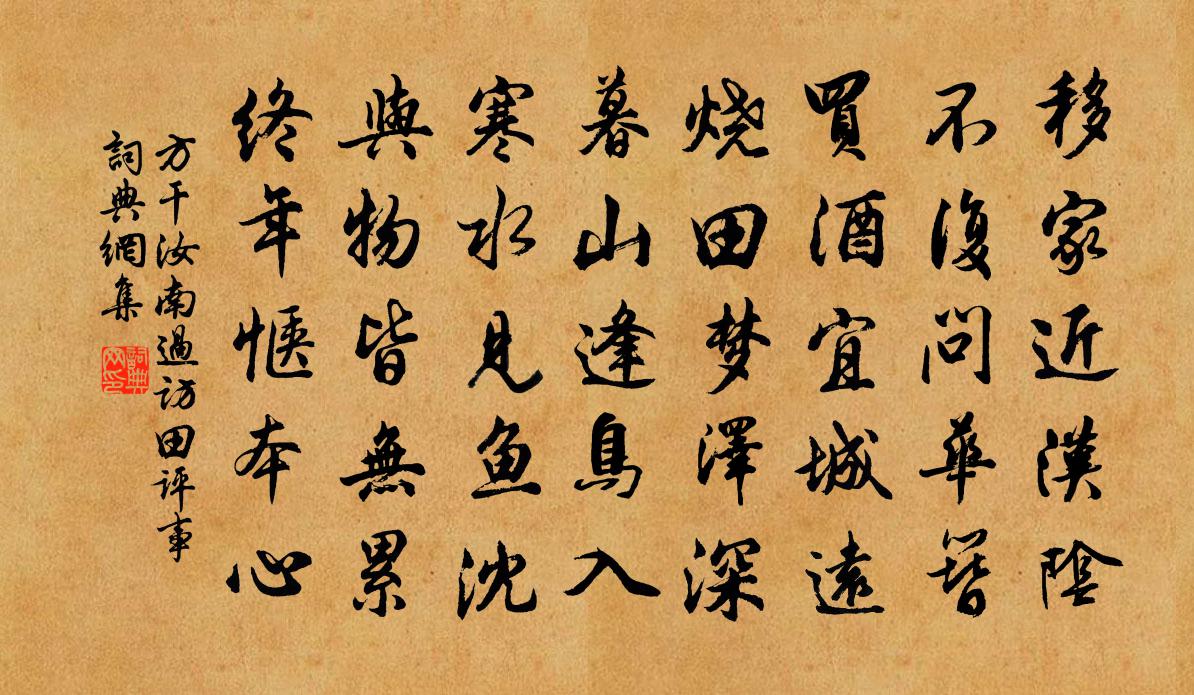 移家近漢陰
不復問華簪
買酒宜城遠
烧田梦澤深
暮山逢鳥入
寒水見魚沈
與物皆無累
終年愜本心
方干汝南過訪田评事
詞典網集
詞典网印